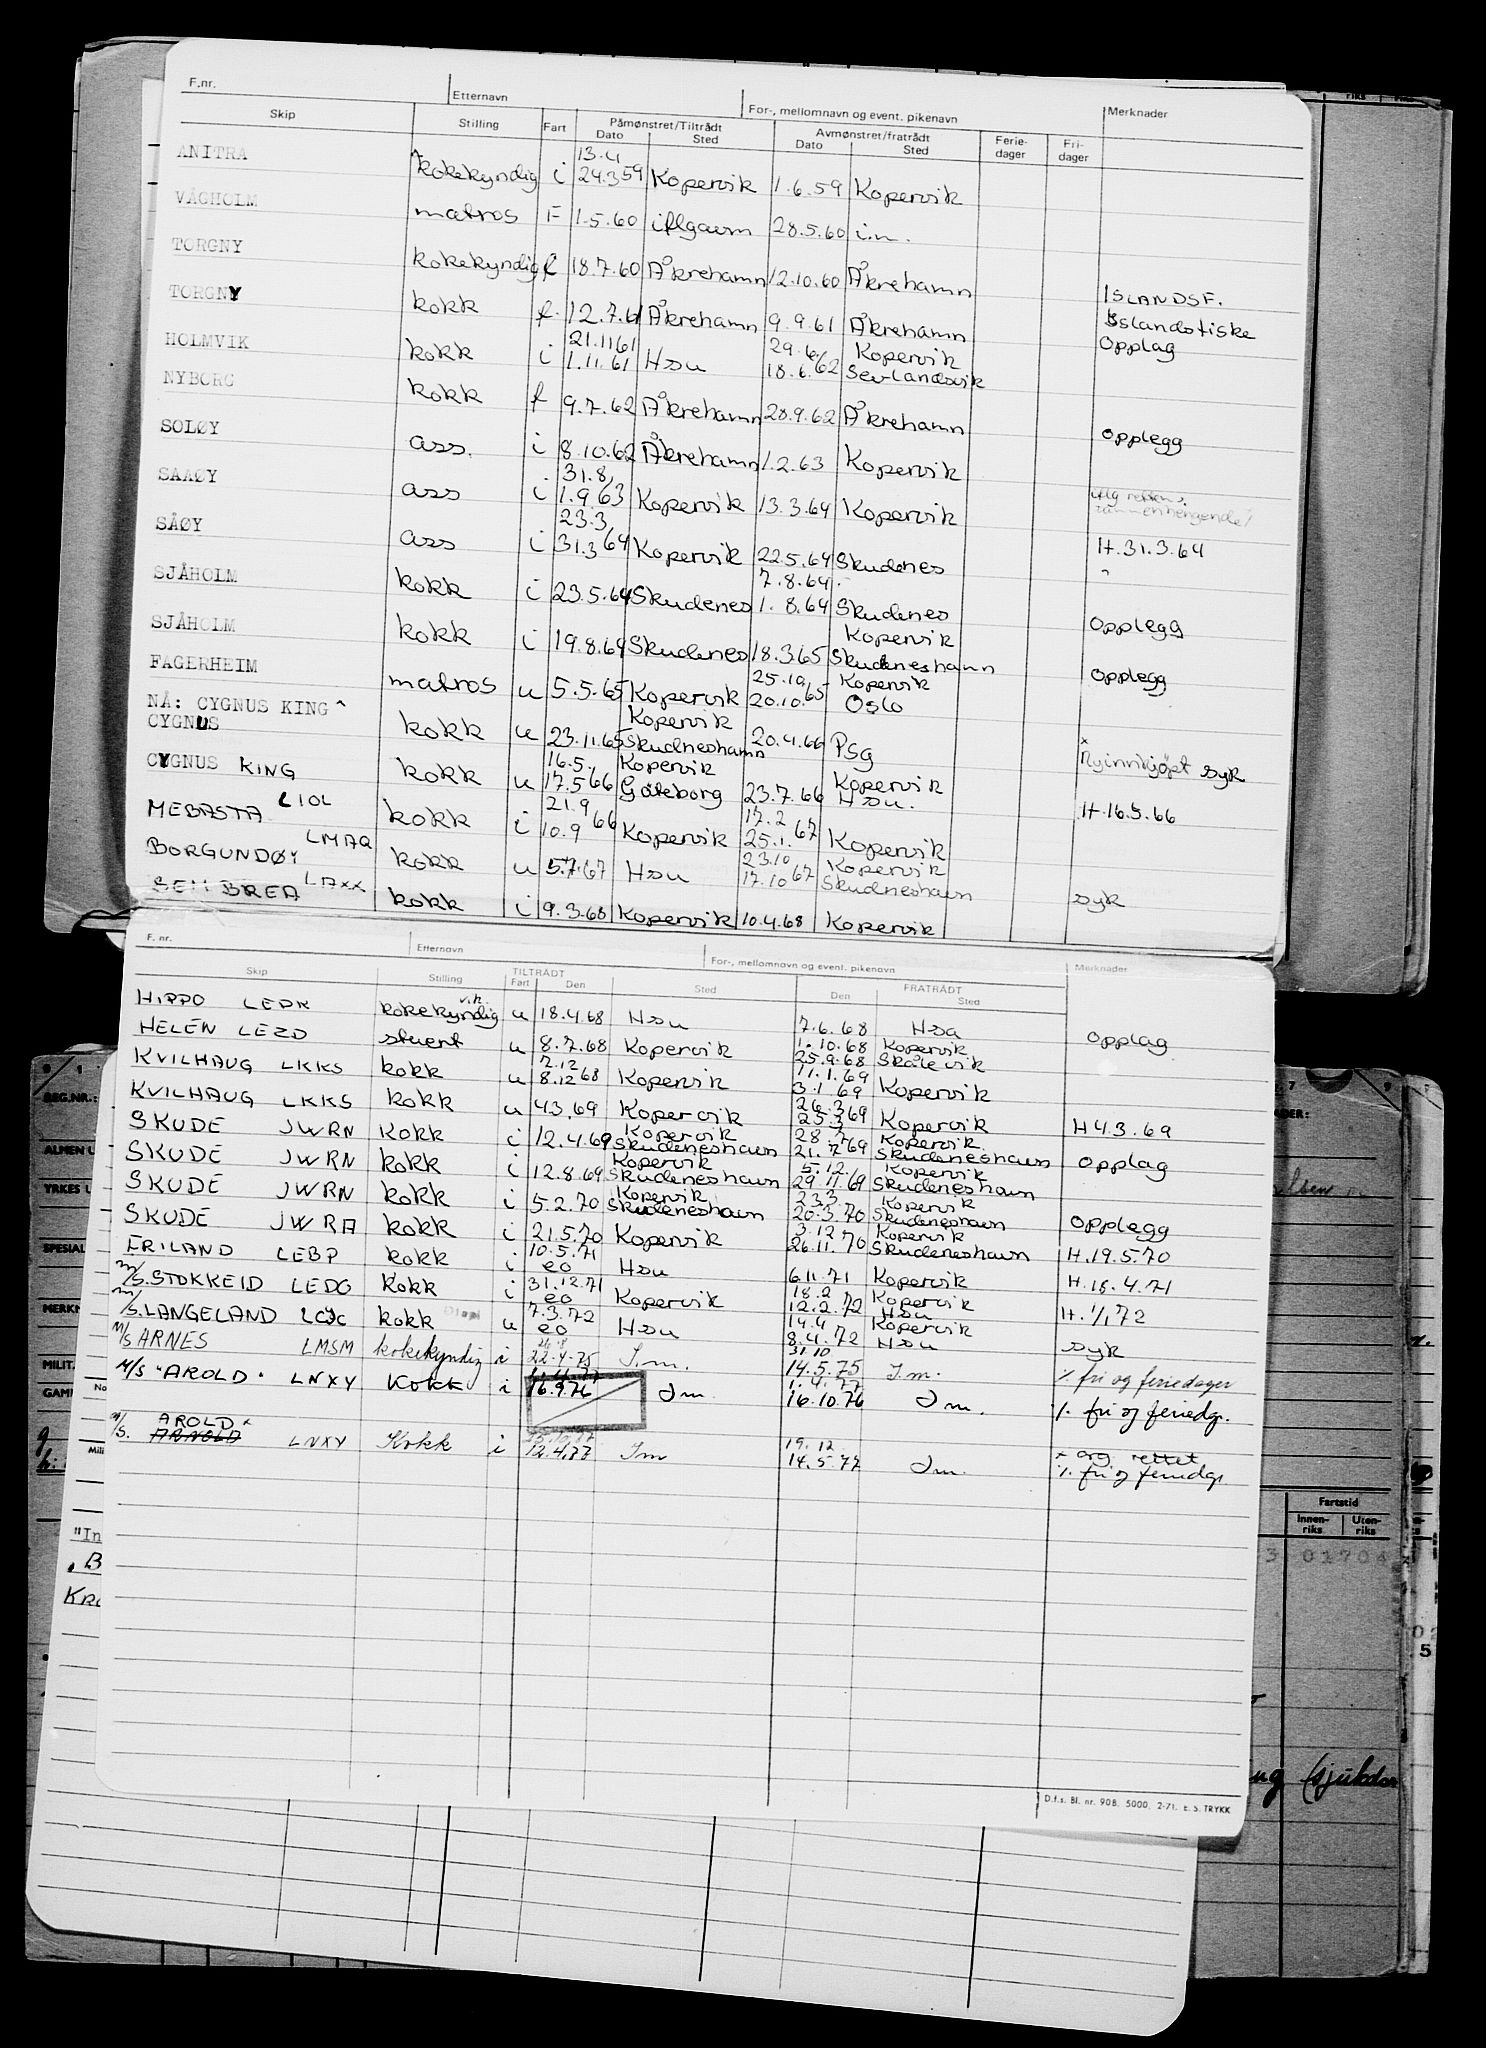 F.nr. Etternavn For-, mellomnavn og event. pikenavn Merknader
Skip Stilling Fart Påmønstret/Tiltrådt Avmønstret/fratrådt Ferie- Fri-
Dato Sted Dato Sted dager dager
13.4
ANITRA kokekyndig i 24.3 59 Kopervik 1.6.59 Kopervik
VÅGHOLM matros F 1.5.60 iflgavm 28.5.60 i.m.
TORGNY kokekyndig f 18.7.60 Åkrehamn 12.10.60 Åkrehamn ISLANDSF.
TORGNY kokk f. 12.7.61 Åkrehamn 9.9.61 Åkrehamn Islandsfiske
Opplag
21.11 61 29.6 Kopervik
HOLMVIK kokk i 1.11.61 Hsu 18.6.62 Sevlandsvik
NYBORG kokk f 9.7.62 Åkrehamn 28.9.62 Åkrehamn opplegg
SOLØY ass. i 8.10.62 Åkrehamn 1.2.63 Kopervik
31.8
SAAØY ass i 1.9 63 Kopervik 13.3.64 Kopervik
23.3
SÅØY ass i 31.3 64 Kopervik 22.5.64 Skudenes H.31.3.64
7.8.64
SJÅHOLM kokk i 23.5.64 Skudenes 1.8.64 Skudenes opplegg
Kopervik
SJÅHOLM kokk i 19.8.64 Skudenes 18.3.65 Skudeneshamn opplegg
25.10 Kopervik
FAGERHEIM matros u 5.5.65 Kopervik 20.10.65 Oslo
NÅ: CYGNUS KING ^ Kopervik
CYGNUS kokk u 23.11.65 Skudneshamn 20.4.66 Psg x Nyinnkjøpt syk
16.5. Kopervik Kopervik
CYGNUS KING kokk u 17.5 66 Göteborg 23.7.66 Hsu. H.16.5.66
LIOL 21.9 17.2
MEBASTA kokk i 10.9 66 Kopervik 25.1. 67 Kopervik
LMAQ 23.10 Kopervik
BORGUNDØY kokk u 5.7.67 Hsu 17.10 67 Skudneshavn syk
LAXX
BREA kokk i 9.3.68 Kopervik 10.4.68 Kopervik
F. nr. Etternavn For-, mellomnavn og event. pikenavn Merknader
Skip Stilling TILTRÅDT FRATRÅDT
Fart Den Sted Den Sted
HIPPO LEDR kokekyndig vik. u 18.4.68 Hsu 7.6.68 Hsu opplag
1.10.68 Kopervik
HELEN LEZD stuert u 8.7.68 Kopervik 25.9.68 Skålevik
7.12 11.1.69
KVILHAUG LKKS kokk u 8.12 68 Kopervik 3.1 69 Kopervik
26.3 69
KVILHAUG LKKS kokk u 4.3.69 Kopervik 25.3 Kopervik H 4.3.69
Kopervik 28.7 Kopervik
SKUDE JWRN Kokk i 12.4.69 Skudeneshavn 21.7 69 Skudeneshavn opplag
Kopervik 5.12. Kopervik
SKUDE JWRN kokk i 12.8.69 Skudeneshavn 29.11.69 Skudeneshavn
Kopervik 23.3 Kopervik
SKUDE JWRN kokk i 5.2.70 Skudeneshavn 20.3.70 Skudeneshavn opplegg
3.12 Kopervik
SKUDE JWRA kokk i 21.5.70 Kopervik 26.11.70 Skudeneshavn H.19.5.70
10.5.71
FRILAND LEBP kokk i eo Hsu 6.11.71 Kopervik H.18.4.71
31.12.71 18.2 Kopervik
M/S. STOKKEID LEDG kokk i eo Kopervik 12.2.72 Hsu H.1/1 72
7.3.72 14.4 Kopervik
M/S. LANGELAND kokk u eo Hsu 8.4.72 Hsu syk
31.10
M/S ARNES LMSM kokekyndig i 22.4.75 I.m. 14.5.75 I.m. ٪ fri og feriedager
1.4.77
M/S "AROLD" LNXY Kokk i 16.9.76 Im 16.10.76 Im. ٪ fri og feriedgr.
AROLD x 19.12 x org. rettet
M/S. ARNOLD LNXY Kokk i 12.4.77 Im 14.5.77 Im. ٪ fri og feriedgr.
D.f.s. Bl. nr. 908. 5000. 2-71. E. S. TRYKK
REG.NR.:
SPESIAL
MILIT.
"In
Fartstid
Innen- Uten-
riks riks
3 01704
(sjukdom